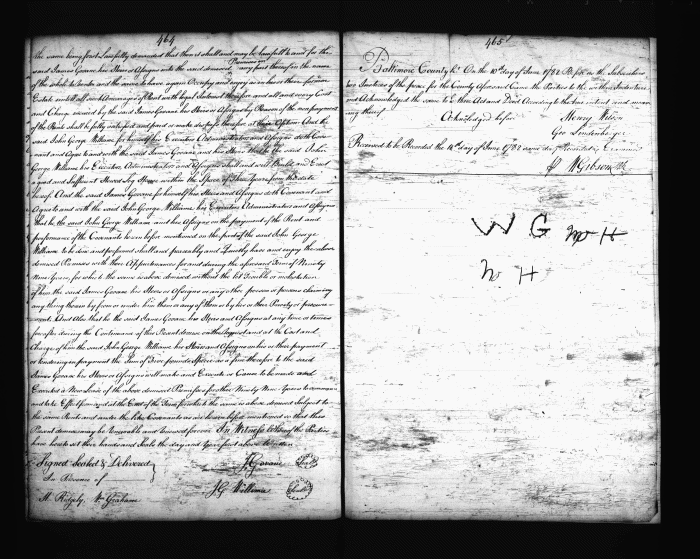 464
the same being first Lawfully demanded that then it shall and may be lawfull to and for the
said James Govane his Heirs or Assigns into the said demised Premises or any part thereof in the name
of the whole to reenter and the same to have again Occupy and enjoy as in their former
Estate until all such Arrearages of Rent with legal Interest therefor and all and every Cost
and Charge incurred by the said James Govane his Heirs or Assigns by Reason of the non payment
of the Rent shall be fully satisfied and paid or make
said John George Williams for himself his Executors Administrators and Assigns doth Cove
nant and Agree to and with the said James Govane and his Heirs that he the said John
George Williams his Executors Administrators and Assigns shall and will Build and Erect
a good and sufficient House
hereof. And the said James Govane for himself his Heirs and Assigns doth Covenant and
Agree to and with the said John George Williams his Executors Administrators and Assigns
that he the said John George Williams and his Assigns on the payment of the Rent and
performance of the Covenants herein before mentioned on the part of the said John George
Williams to be done and performed shall and peaceably and Quietly have and enjoy the above
demised Premises with their Appurtenances for and during the aforesaid Term of Ninety
Nine Years for which the same is above demised without the let Trouble or molestation
of him the said James Govane his Heirs or Assigns or any other person or persons claiming
any thing therein by from or under him them or any of them or by his or their Privity or procure
ment. And Also that he the said James Govane his Heirs and Assigns at any time or times
for ever during the Continuance of this Present demise on the request and at the Cost and
Charge of him the said John George Williams his Heirs and Assigns on his or their payment
or tendering in payment the Sum of Five pounds as a fine therefor to the said
James Govane his Heirs or Assigns will make and Execute or Cause to be made and
Executed a New Lease of the above demised Premises for other Ninety Nine Years to commence
and take Effect from and at the End of the Term for which the same is above demised Subject to
the same Rents and under the like Covenants as are herein before mentioned so that these
Present demises may be Renewable and Renewed forever. In Witness whereof the Parties
have hereto set their hands and Seals the day and Year first above Written
Signed Sealed & Delivered
In Presence of
J Govane Seal
J G Williams Seal
M. Ridgely, Wm Graham
465
Baltimore County Sc. On the 10th day of June 1782 Before us the Subscribers
two Justices of the peace for the County Aforesaid Came the Parties to the within Indenture
and Acknowledged the same to be their Act and Deed According to the true intent and mean
ing thereof.
Acknowledged before
Henry Wilson
Geo Lindenberger
Received to be Recorded the 14th day of June 1782 same day Recorded & Examined
W Gibson Clk
W G W H
W H